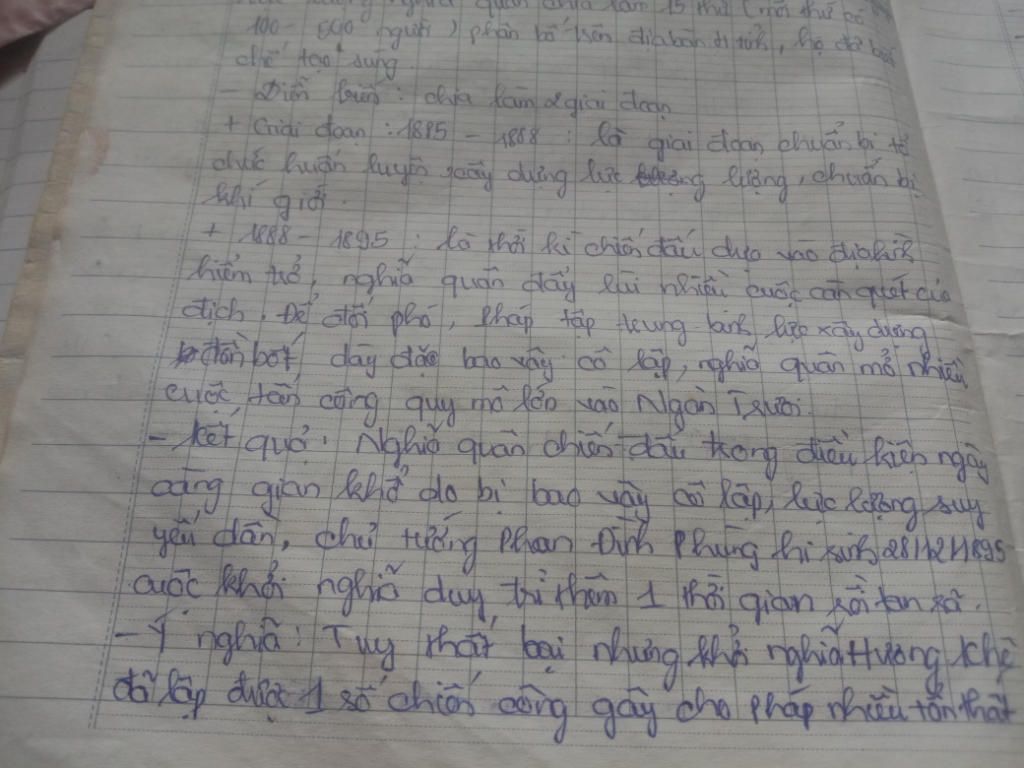 nghĩa quân chia làm 15 thứ (mỗi thứ có
100 - 500 người) phân bố trên địa bàn 4 tỉnh, họ đã biết
chế tạo súng.
- Diễn biến: chia làm 2 giai đoạn
+ Giai đoạn: 1885 - 1888: là giai đoạn chuẩn bị tổ
chức huấn luyện, xây dựng lực lượng, chuẩn bị
khí giới.
+ 1888 - 1895: là thời kì chiến đấu dựa vào địa hình
hiểm trở, nghĩa quân đẩy lùi nhiều cuộc càn quét của
địch. Để đối phó, Pháp tập trung binh lực xây dựng
đồn bốt, dày đặc bao vây cô lập, nghĩa quân mở nhiều
cuộc tấn công quy mô lớn vào Ngàn Trươi.
- Kết quả: Nghĩa quân chiến đấu trong điều kiện ngày
càng gian khổ do bị bao vây cô lập, lực lượng suy
yếu dần, chủ tướng Phan Đình Phùng hi sinh 28/12/1895
cuộc khởi nghĩa duy trì thêm 1 thời gian rồi tan rã.
- Ý nghĩa: Tuy thất bại nhưng khởi nghĩa Hương Khê
đã lập được 1 số chiến công gây cho Pháp nhiều tổn thất